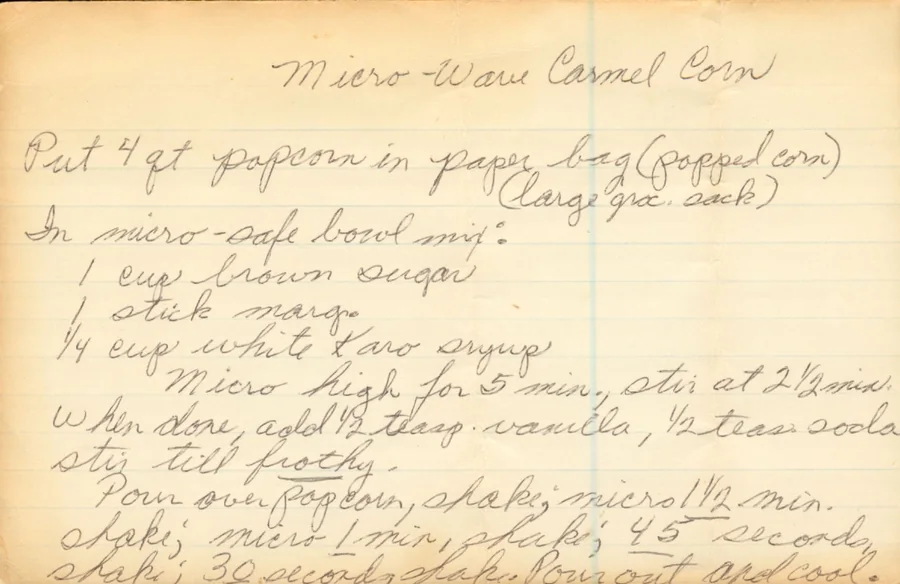 Micro-Wave Carmel Corn
Put 4 qt popcorn in paper bag (popped corn)
(large groc. sack)
In micro-safe bowl mix:
1 cup brown sugar
1 stick marg.
1/4 cup white Karo sryup
Micro high for 5 min., stir at 2 1/2 min.
When done, add 1/2 teasp. vanilla, 1/2 teas. soda
stir till frothy.
Pour over popcorn, shake; micro 1 1/2 min.
shake; micro 1 min, shake; 45 seconds,
shake; 30 seconds shake. Pour out and cool.